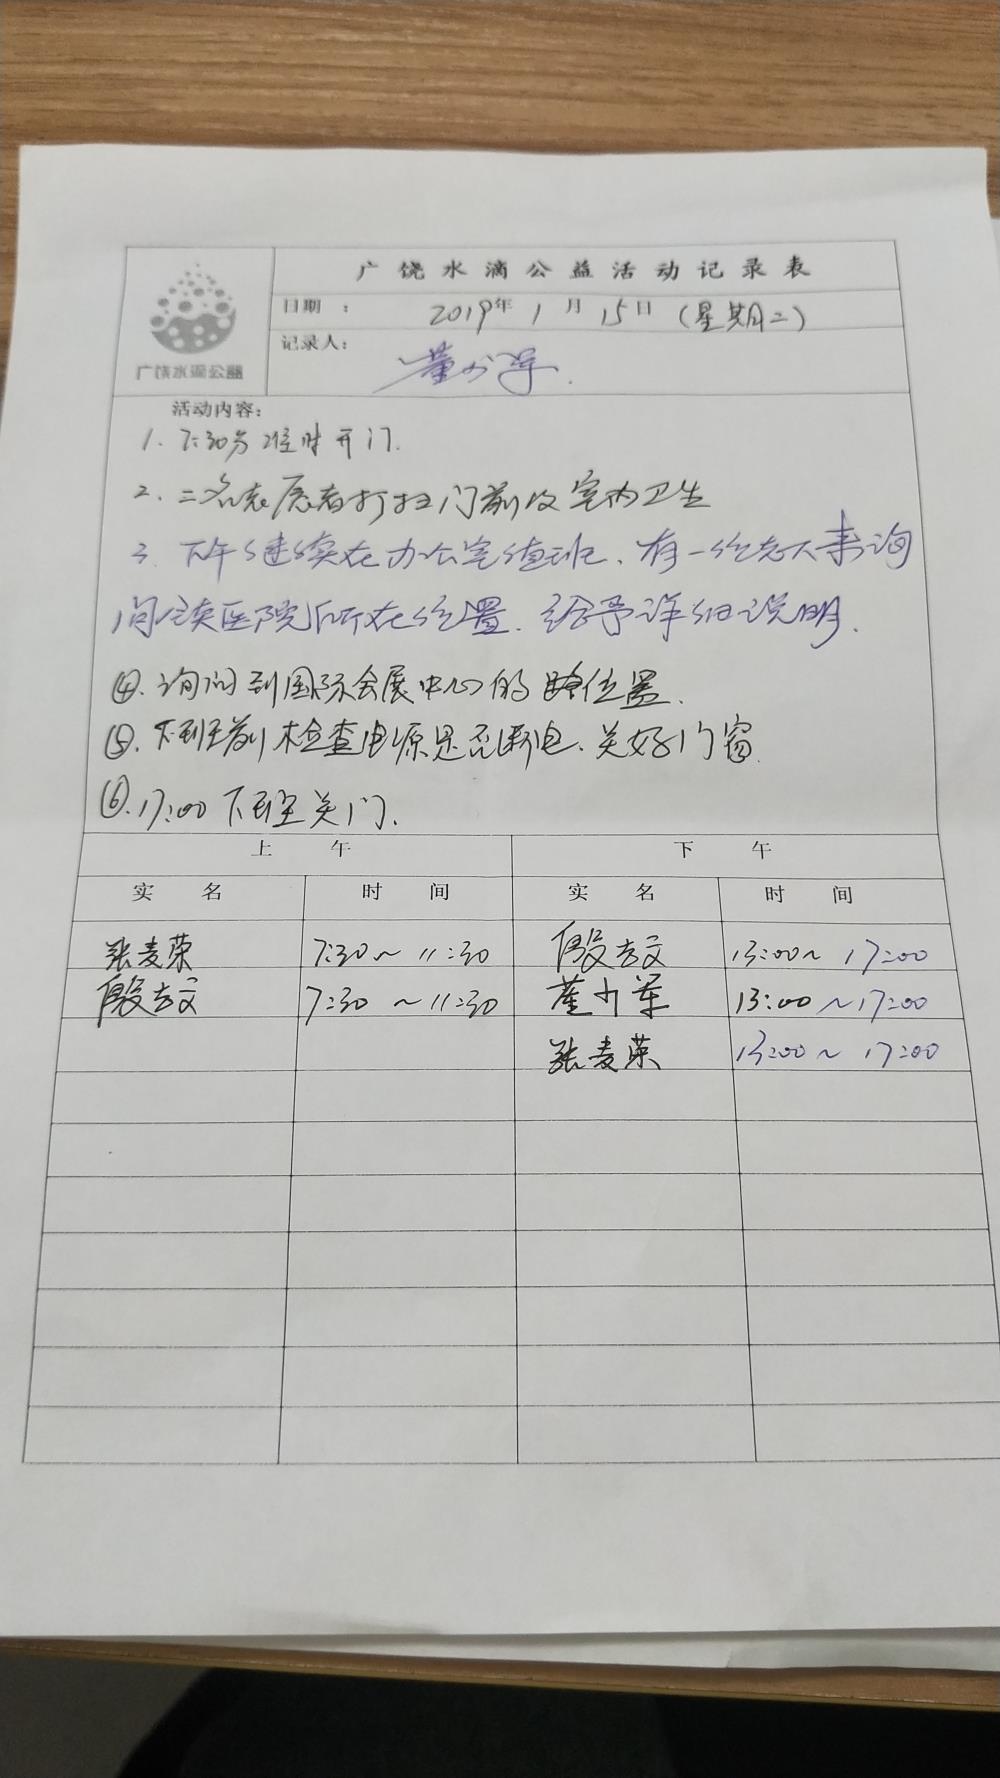 广饶水滴公益活动记录表
日期 : 2019年1月15日(星期二)
广饶水滴公益
记录人: 董少军
活动内容:
1. 7:30分准时开门.
2. 二名志愿者打扫门前及室内卫生
3. 下午继续在办公室值班、有一位老人来询
问医院所在位置. 给予详细说明.
④. 询问到国际会展中心的路位置.
⑤. 下班前检查电源是否断电、关好门窗.
⑥. 17:00下班关门.
上 午 下 午
实 名 时 间 实 名 时 间
张麦荣 7:30~11:30 殷吉文 13:00~17:00
殷吉文 7:30~11:30 董少军 13:00~17:00
张麦荣 13:00~17:00